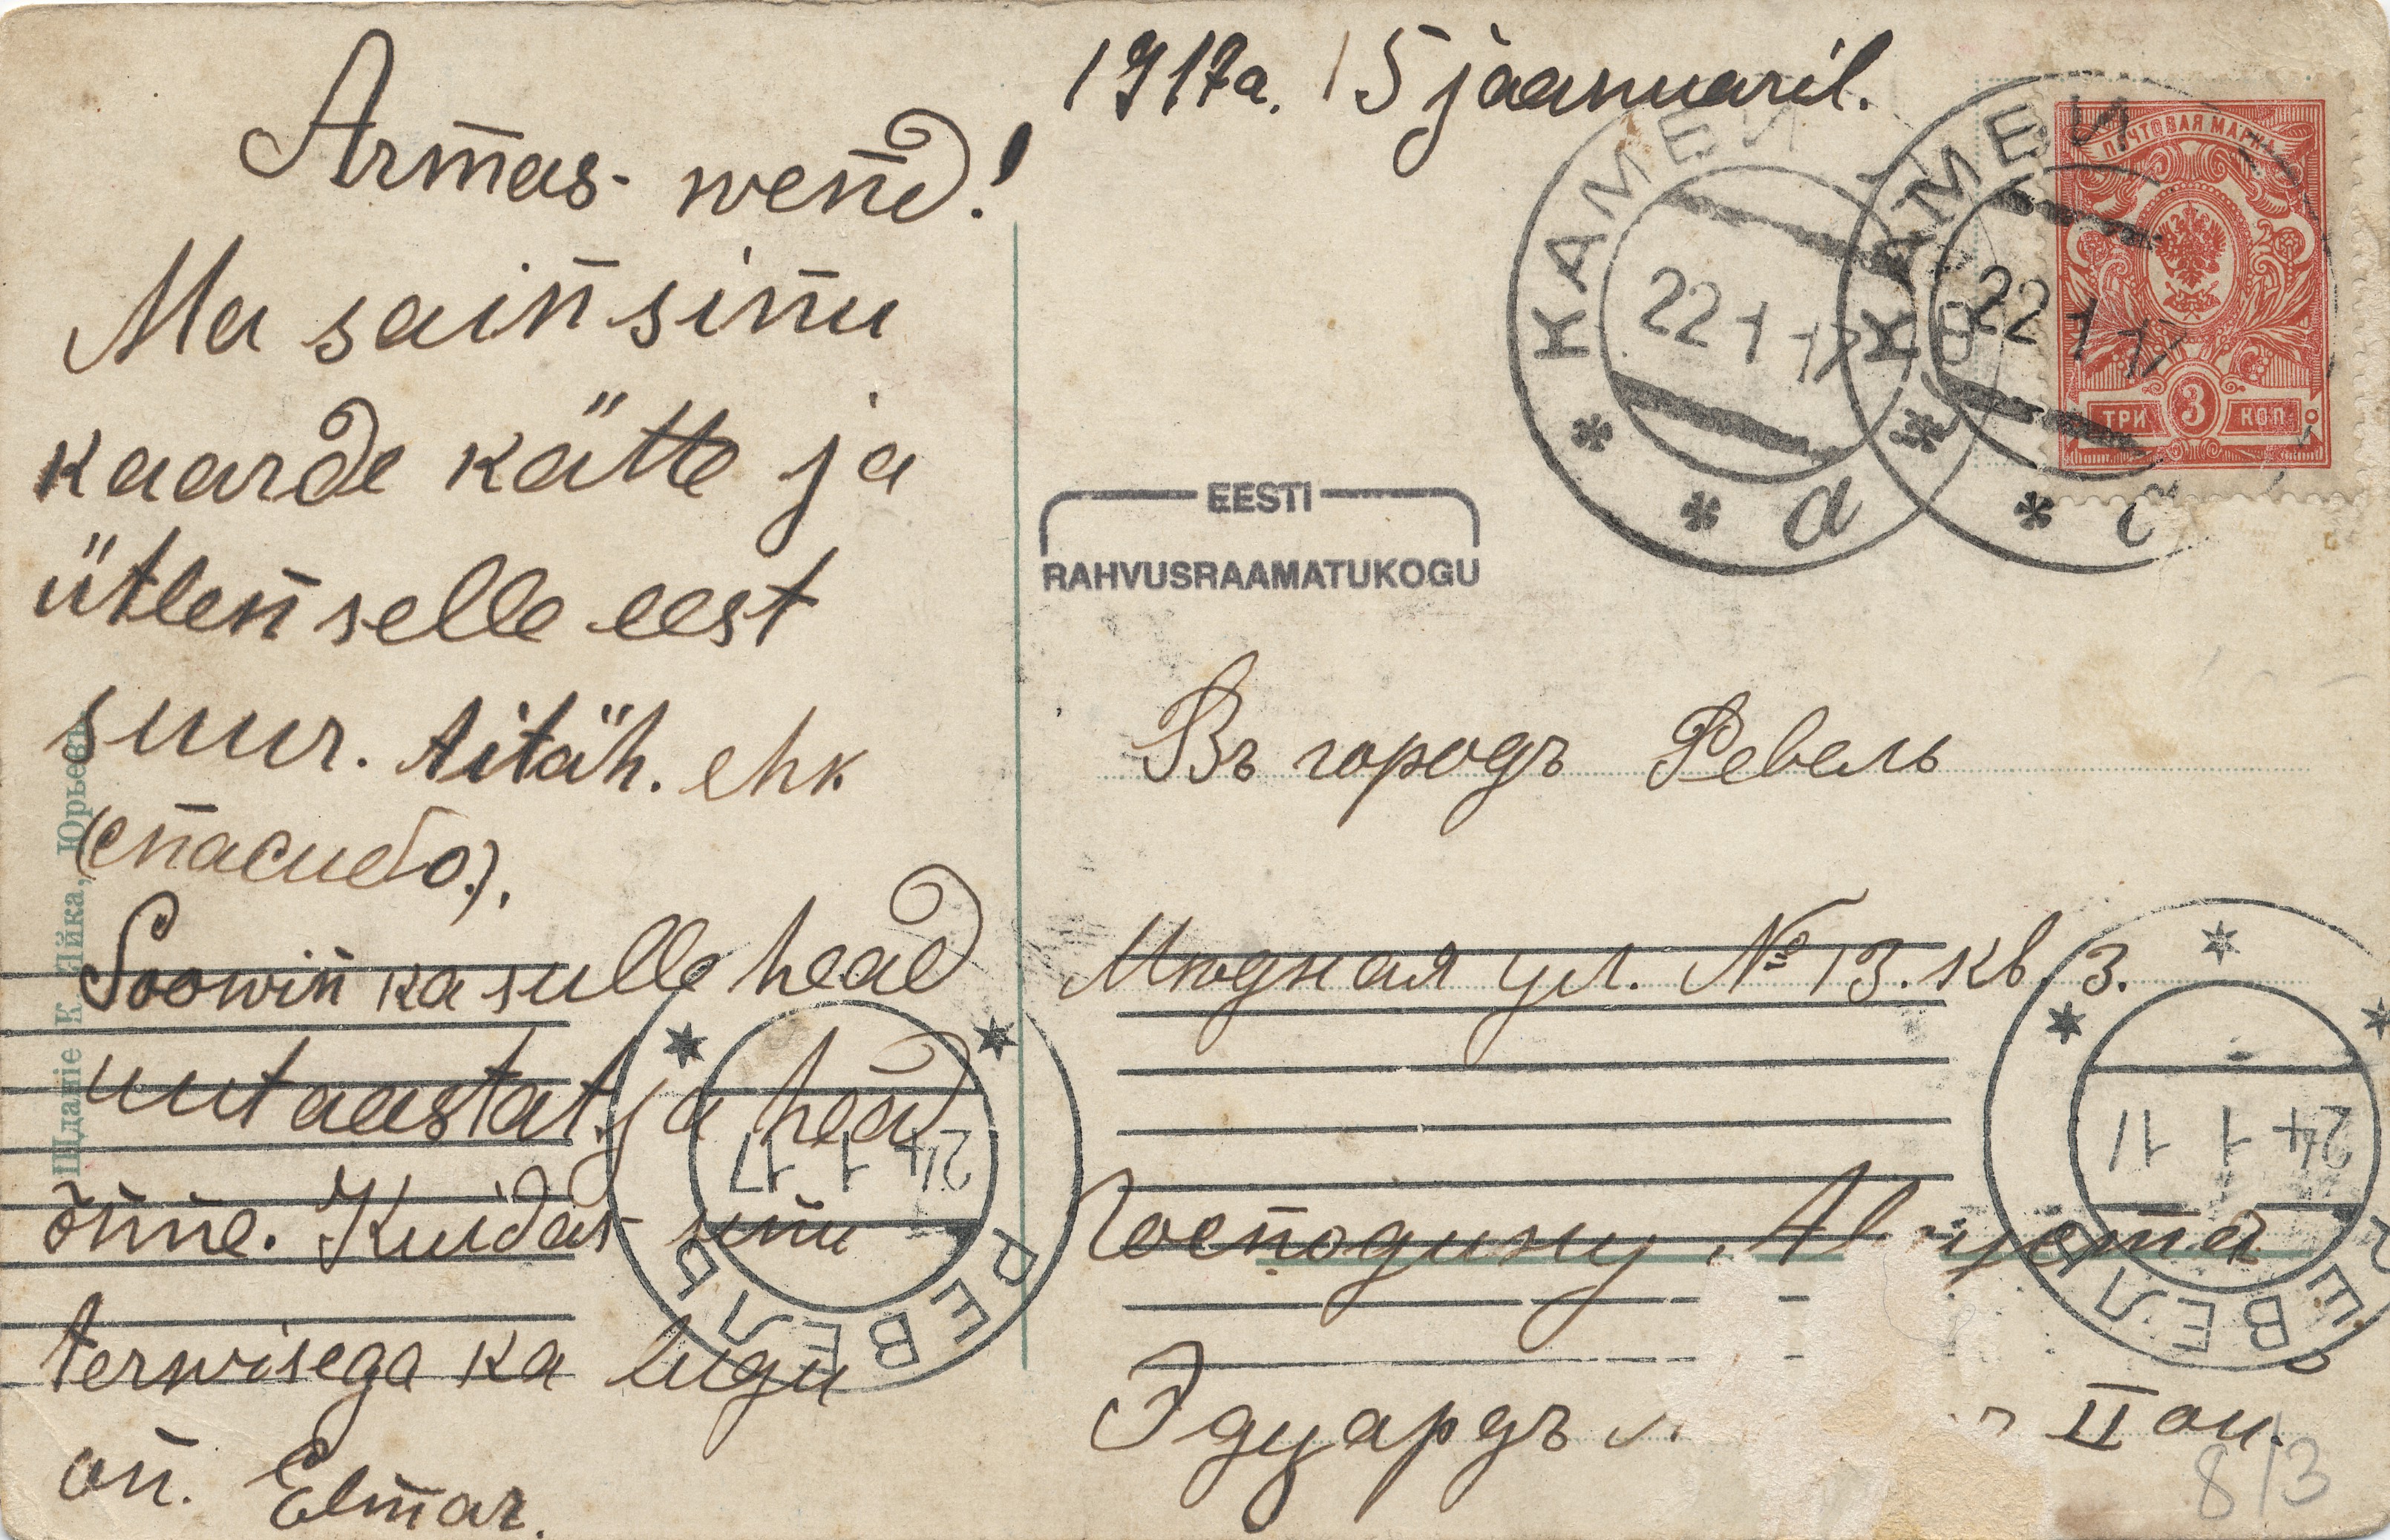 Armas wend!
Ma sain sinu
kaarde kätte ja
ütlen selle eest
suur. Aitäh. ehk
(спасибо).
Soowin ka sulle head
uut aastat. ja head
õnne. Kuidas sinu
terwisega ka lugu
on. Elmar.
1917a. 15 jaanuaril.
КАМБИ
22 1 17
а
КАМБИ
22 1 17
ПОЧТОВАЯ МАРКА
ТРИ 3 КОП
EESTI
RAHVUSRAAMATUKOGU
Въ городъ Ревель
ул. № 13. кв. 3.
Господину
Эдуардъ II
813
РЕВЕЛЬ
24 1 17
РЕВЕЛЬ
24 1 17
К. Юрьевъ